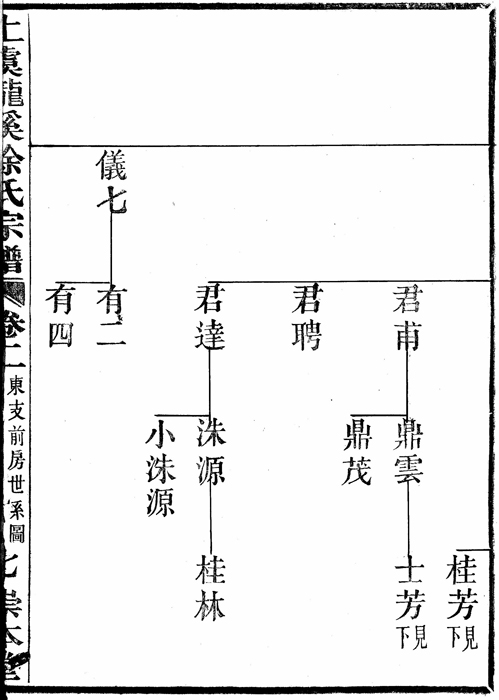 桂芳見下
君甫
鼎雲
士芳見下
鼎茂
君聘
君達
洙源
桂林
小洙源
儀七
有二
有四
上虞龍溪徐氏宗譜
卷二
東支前房世系圖
七
崇本堂